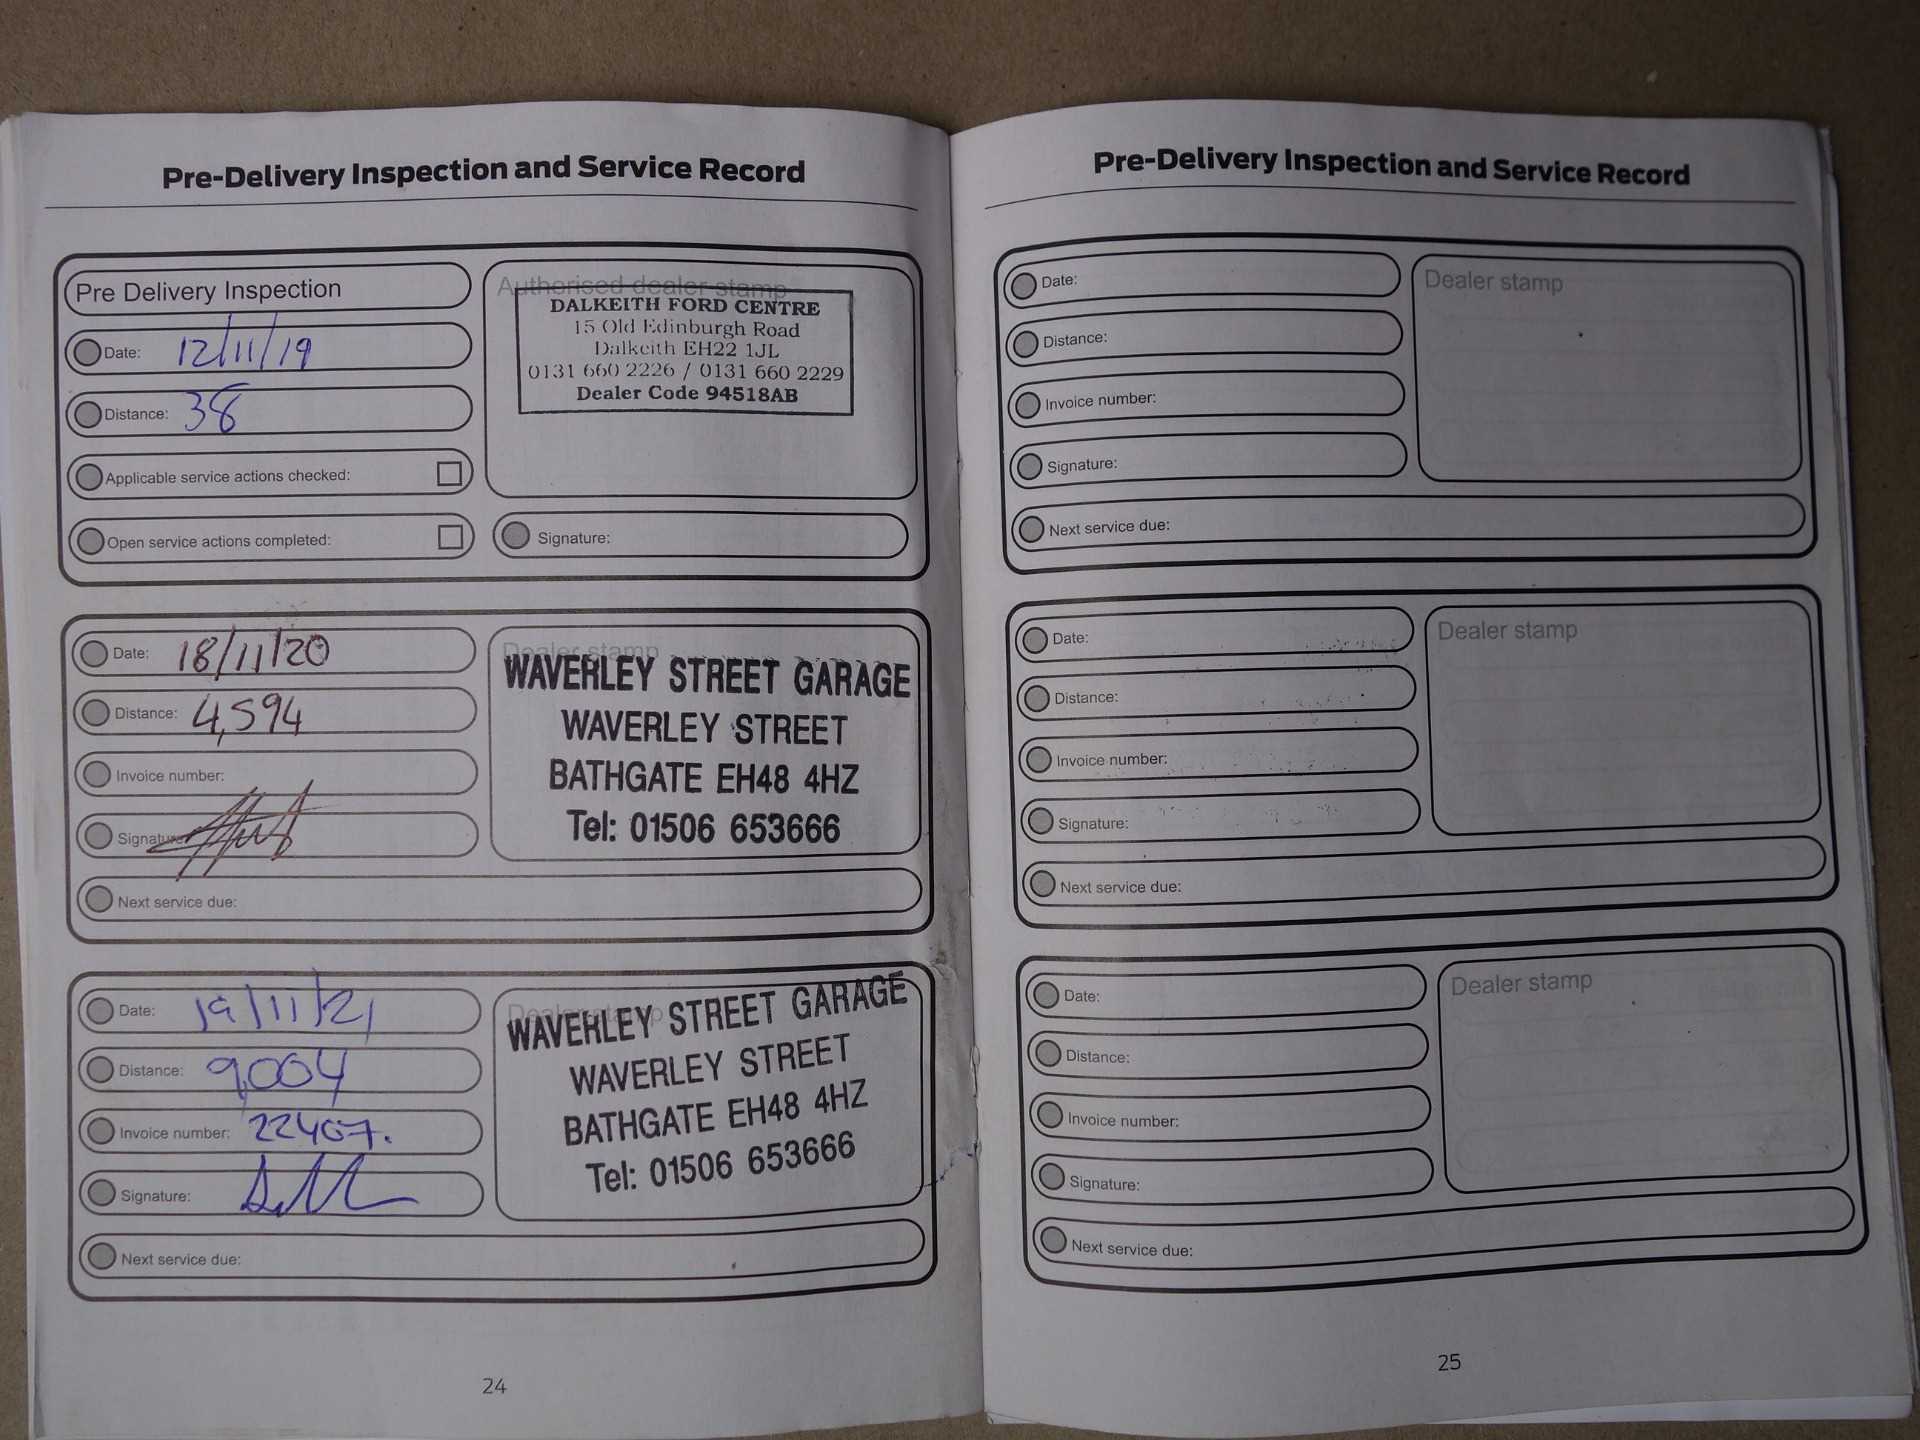 Pre-Delivery Inspection and Service Record
Pre Delivery Inspection
Date: 12/11/19
Distance: 38
Applicable service actions checked:
Open service actions completed:
Authorised dealer stamp
DALKEITH FORD CENTRE
15 Old Edinburgh Road
Dalkeith EH22 1JL
0131 660 2226 / 0131 660 2229
Dealer Code 94518AB
Signature:
Date: 18/11/20
Distance: 4,594
Invoice number:
Signature:
Dealer stamp
WAVERLEY STREET GARAGE
WAVERLEY STREET
BATHGATE EH48 4HZ
Tel: 01506 653666
Next service due:
Date: 19/11/21
Distance: 9,004
Invoice number: 22407.
Signature:
Dealer stamp
WAVERLEY STREET GARAGE
WAVERLEY STREET
BATHGATE EH48 4HZ
Tel: 01506 653666
Next service due:
24
Pre-Delivery Inspection and Service Record
Date:
Distance:
Invoice number:
Signature:
Dealer stamp
Next service due:
Date:
Distance:
Invoice number:
Signature:
Dealer stamp
Next service due:
Date:
Distance:
Invoice number:
Signature:
Dealer stamp
Next service due:
25